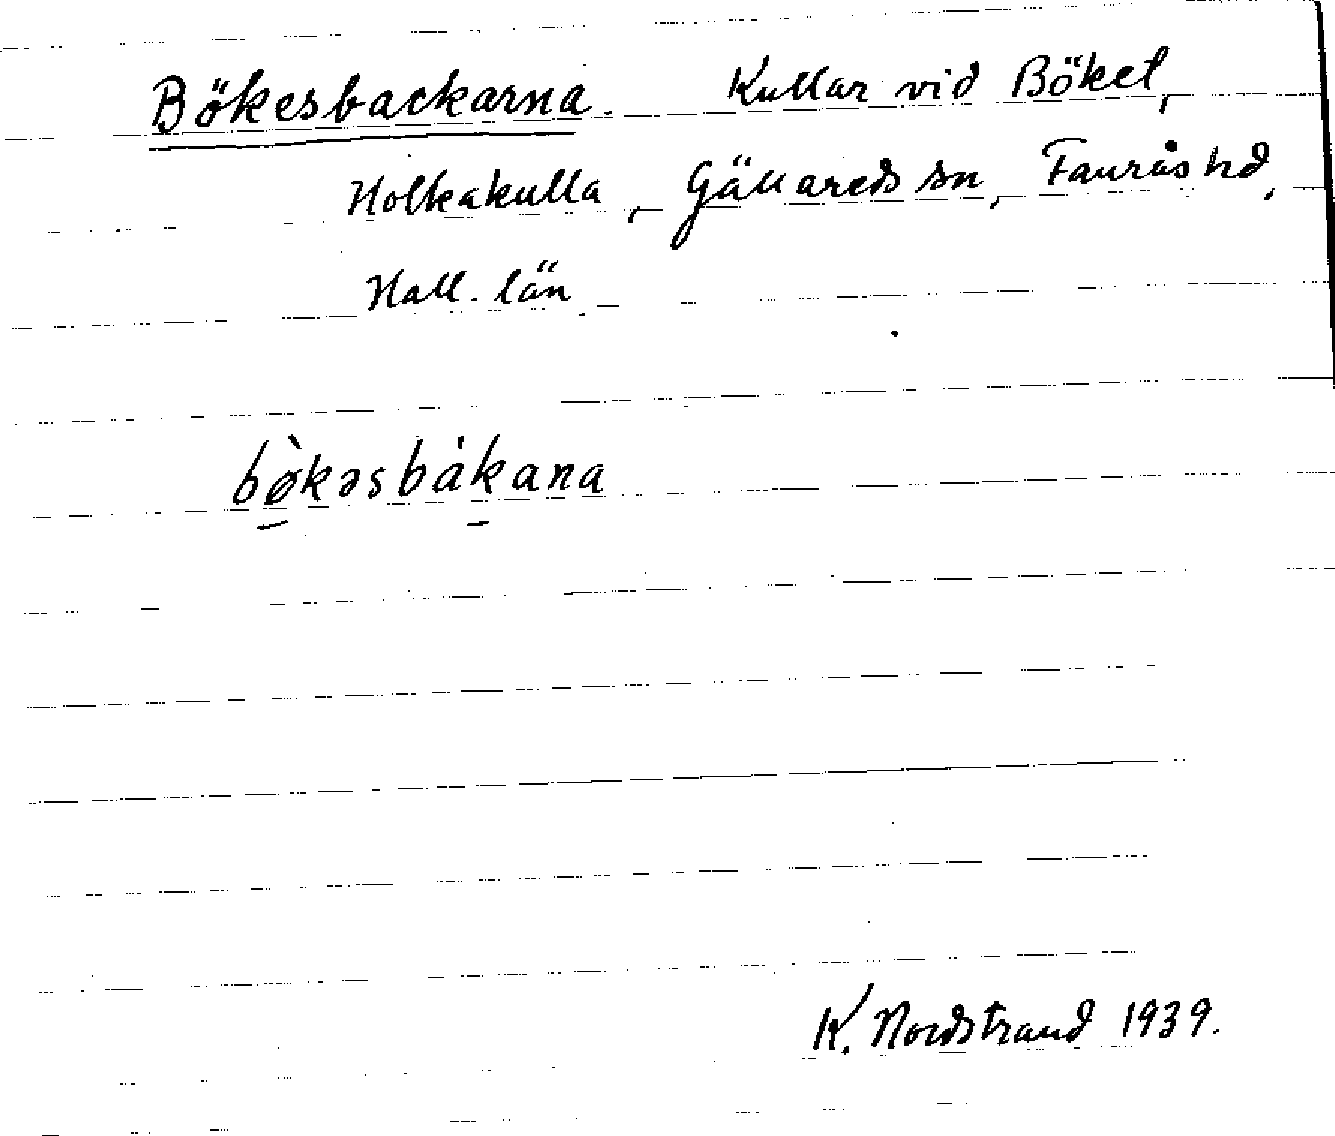 Bökesbackarna. Kullar vid Böket,
Holkakulla, Gällareds sn, Faurås hd,
Hall. län
bø̀kəsbákana
K. Nordstrand 1939.